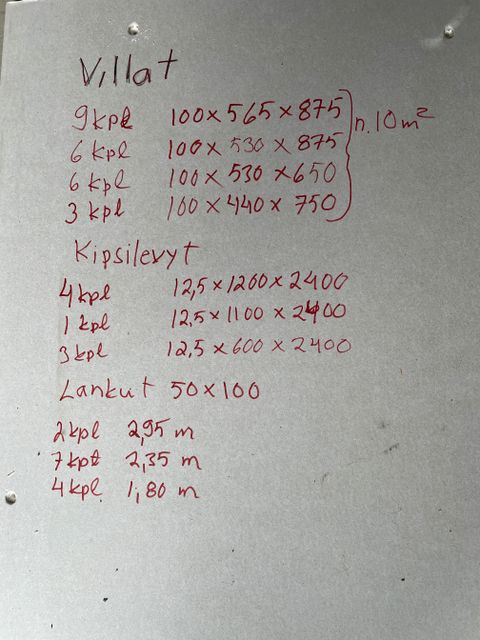 Villat
9 kpl 100 x 565 x 875
6 kpl 100 x 530 x 875 n. 10 m²
6 kpl 100 x 530 x 650
3 kpl 100 x 440 x 750
Kipsilevyt
4 kpl 12,5 x 1200 x 2400
1 kpl 12,5 x 1100 x 2400
3 kpl 12,5 x 600 x 2400
Lankut 50 x 100
2 kpl 2,95 m
7 kpl 2,35 m
4 kpl 1,80 m